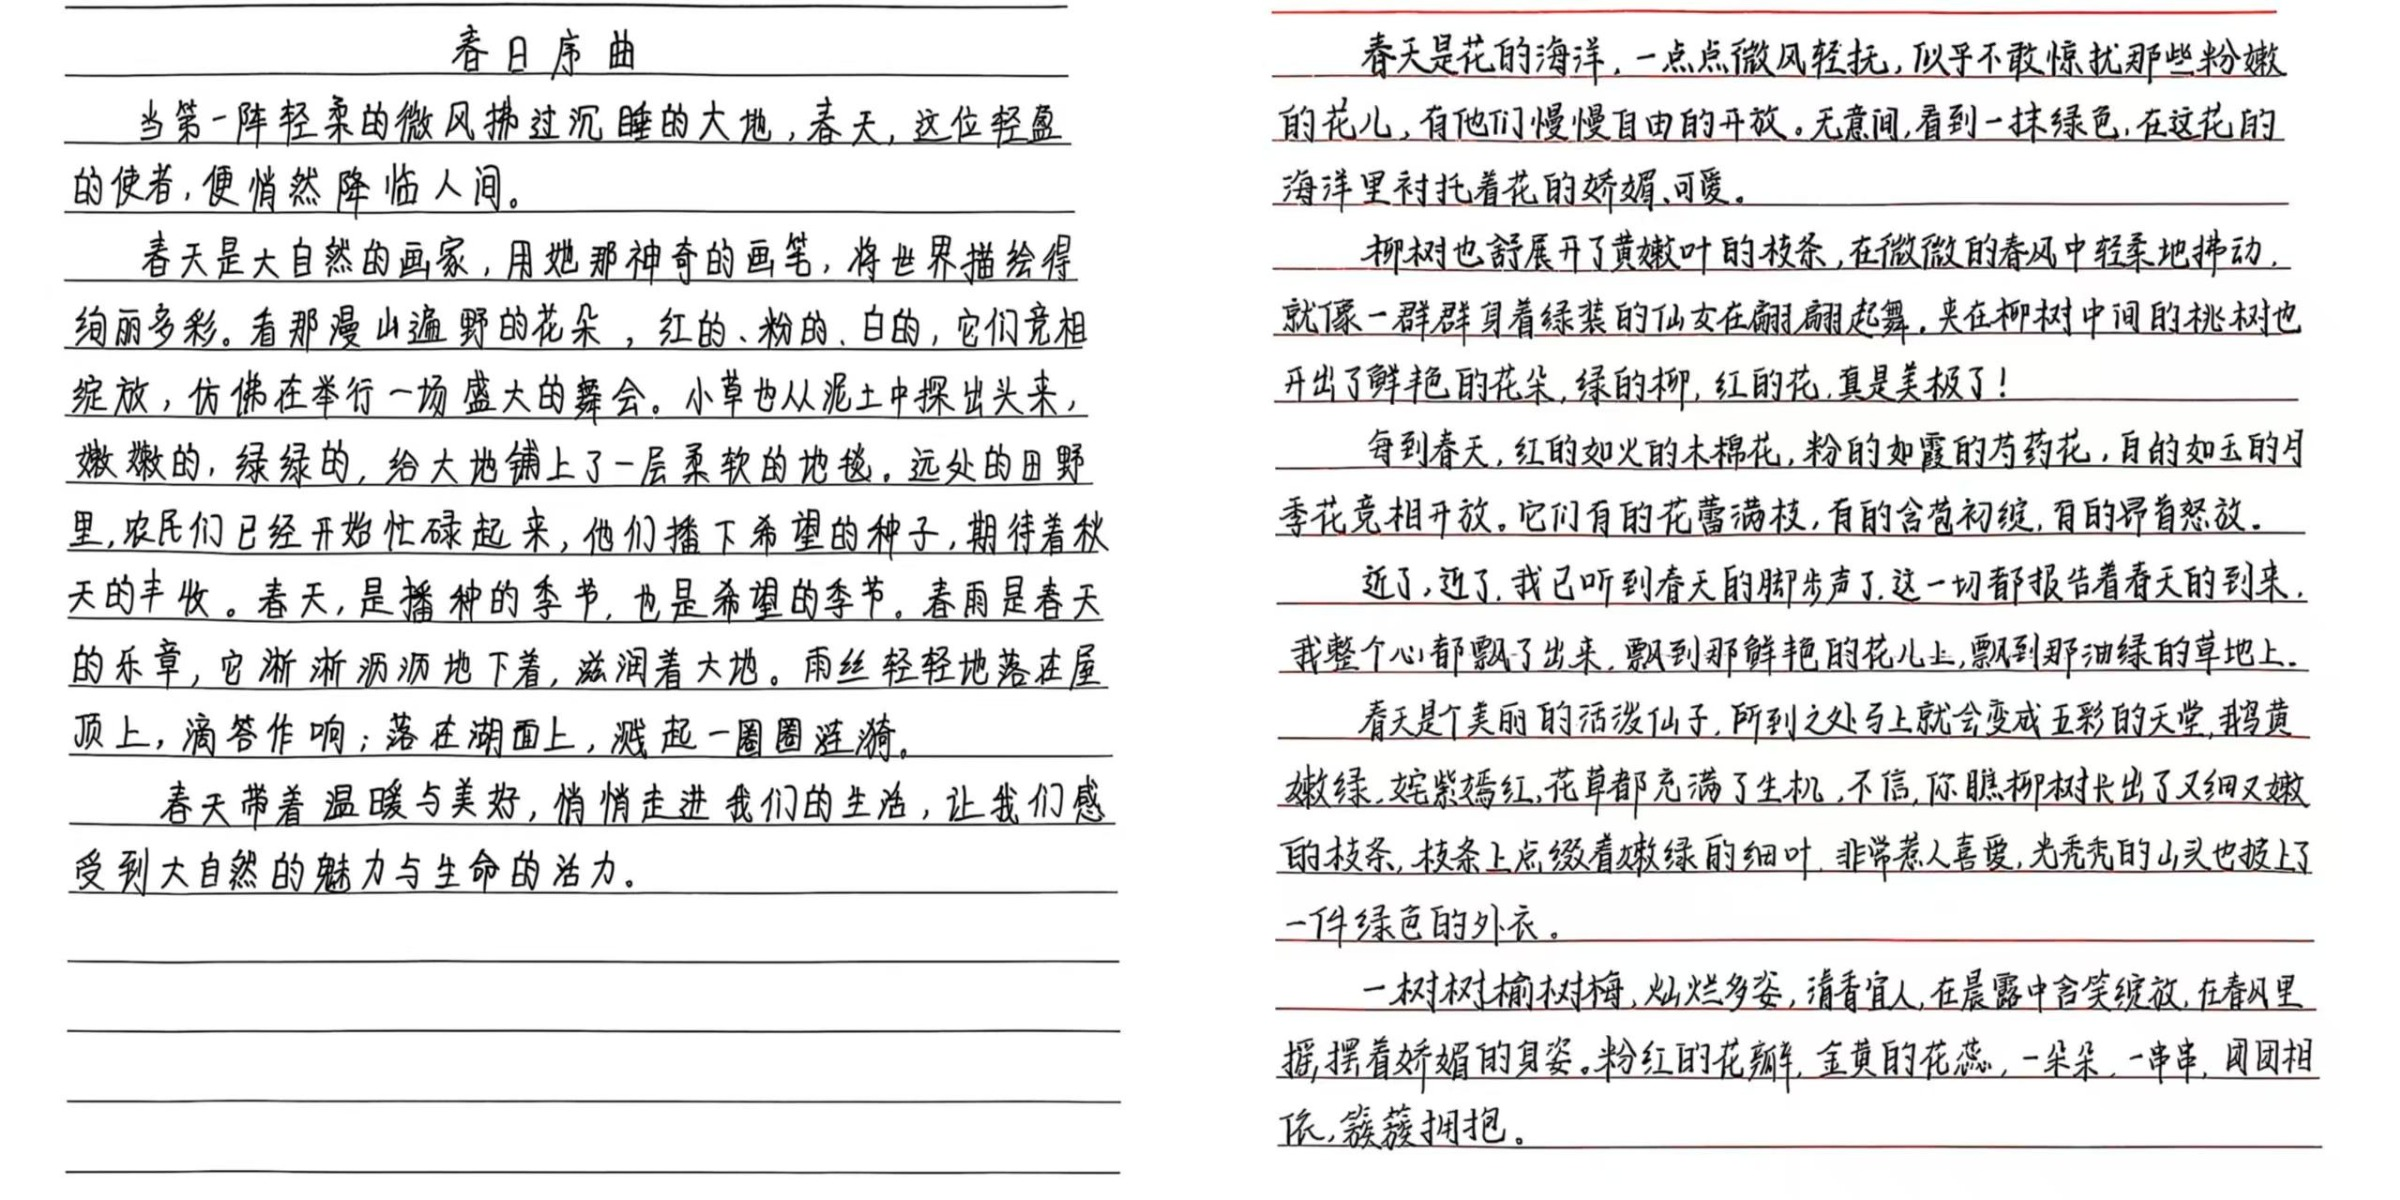 春日序曲
当第一阵轻柔的微风拂过沉睡的大地,春天,这位轻盈
的使者,便悄然降临人间。
春天是大自然的画家,用她那神奇的画笔,将世界描绘得
绚丽多彩。看那漫山遍野的花朵,红的、粉的、白的,它们竞相
绽放,仿佛在举行一场盛大的舞会。小草也从泥土中探出头来,
嫩嫩的,绿绿的,给大地铺上了一层柔软的地毯。远处的田野
里,农民们已经开始忙碌起来,他们播下希望的种子,期待着秋
天的丰收。春天,是播种的季节,也是希望的季节。春雨是春天
的乐章,它淅淅沥沥地下着,滋润着大地。雨丝轻轻地落在屋
顶上,滴答作响;落在湖面上,溅起一圈圈涟漪。
春天带着温暖与美好,悄悄走进我们的生活,让我们感
受到大自然的魅力与生命的活力。
春天是花的海洋,一点点微风轻抚,似乎不敢惊扰那些粉嫩
的花儿,有他们慢慢自由的开放。无意间,看到一抹绿色,在这花的
海洋里衬托着花的娇媚、可爱。
柳树也舒展开了黄嫩叶的枝条,在微微的春风中轻柔地拂动,
就像一群群身着绿装的仙女在翩翩起舞。夹在柳树中间的桃树也
开出了鲜艳的花朵,绿的柳,红的花,真是美极了!
每到春天,红的如火的木棉花,粉的如霞的芍药花,白的如玉的月
季花竞相开放。它们有的花蕾满枝,有的含苞初绽,有的昂首怒放。
近了,近了,我已听到春天的脚步声了,这一切都报告着春天的到来,
我整个心都飘了出来,飘到那鲜艳的花儿上,飘到那油绿的草地上。
春天是个美丽的活泼仙子,所到之处马上就会变成五彩的天堂,鹅黄
嫩绿,姹紫嫣红,花草都充满了生机,不信,你瞧柳树长出了又细又嫩
的枝条,枝条上点缀着嫩绿的细叶,非常惹人喜爱,光秃秃的山头也披上了
一件绿色的外衣。
一树树榆树梅,灿烂多姿,清香宜人,在晨露中含笑绽放,在春风里
摇摆着娇媚的身姿。粉红的花瓣,金黄的花蕊,一朵朵,一串串,团团相
依,簇簇拥抱。